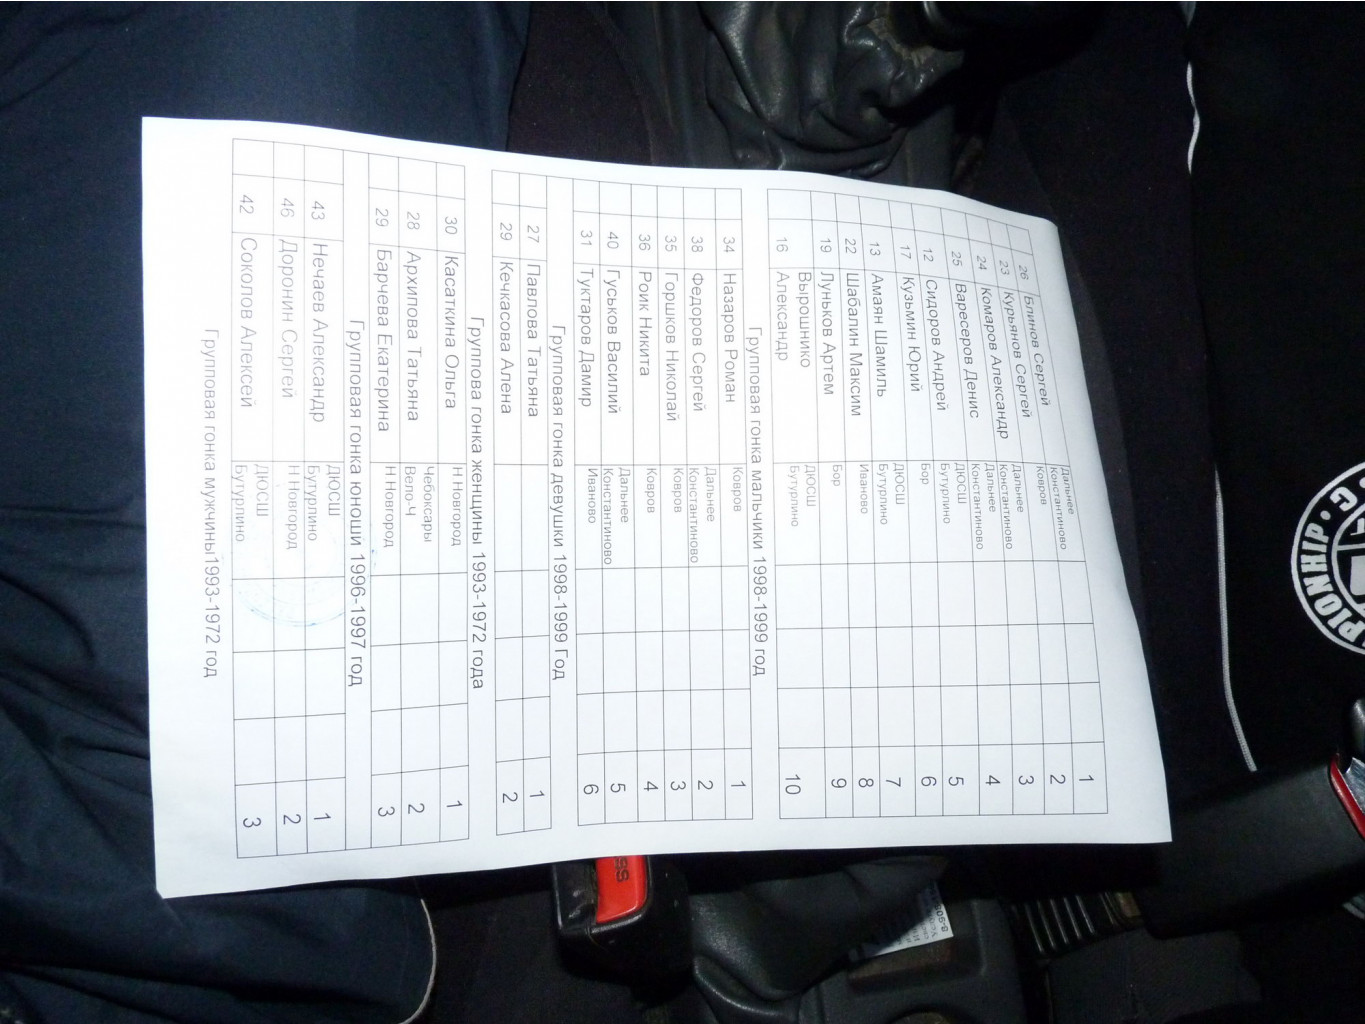 26 Блинов Сергей Дальнее Константиново 1
23 Курьянов Сергей Ковров 2
24 Комаров Александр Дальнее Константиново 3
25 Варесеров Денис Дальнее Константиново 4
12 Сидоров Андрей ДЮСШ Бутурлино 5
17 Кузьмин Юрий Бор 6
13 Амаян Шамиль ДЮСШ Бутурлино 7
22 Шабалин Максим Иваново 8
19 Луньков Артем Бор 9
16 Вырошнико Александр ДЮСШ Бутурлино 10
Групповая гонка мальчики 1998-1999 год
34 Назаров Роман Ковров 1
38 Федоров Сергей Дальнее Константиново 2
35 Горшков Николай Ковров 3
36 Роик Никита Ковров 4
40 Гуськов Василий Дальнее Константиново 5
31 Туктаров Дамир Иваново 6
Групповая гонка девушки 1998-1999 Год
27 Павлова Татьяна 1
29 Кечкасова Алена 2
Группова гонка женщины 1993-1972 года
30 Касаткина Ольга Н Новгород 1
28 Архипова Татьяна Чебоксары Вело-Ч 2
29 Барчева Екатерина Н Новгород 3
Групповая гонка юноши 1996-1997 год
43 Нечаев Александр ДЮСШ Бутурлино 1
46 Доронин Сергей Н Новгород 2
42 Соколов Алексей ДЮСШ Бутурлино 3
Групповая гонка мужчины1993-1972 год
PIONHIP • C